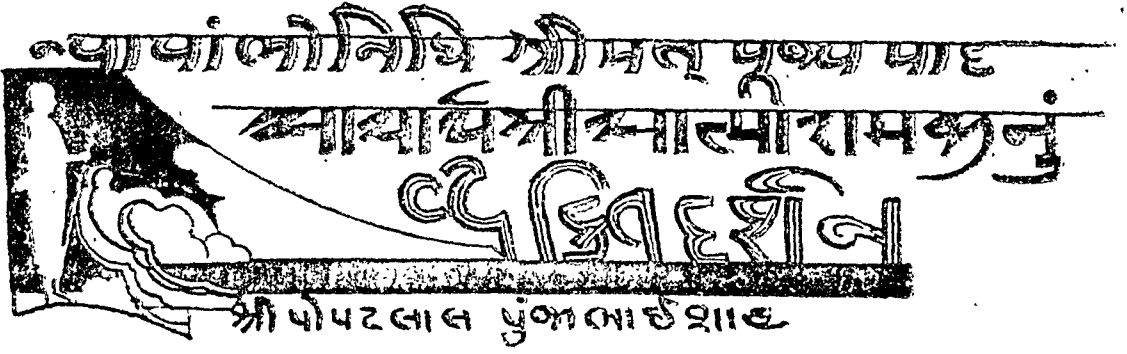 ન્યાયાંભોનિધિ શ્રીમત્ પૂજ્ય પાદ
આચાર્યશ્રી આત્મારામજીનું
વ્યક્તિદર્શન
શ્રી પોપટલાલ પુંજાભાઈ શાહ